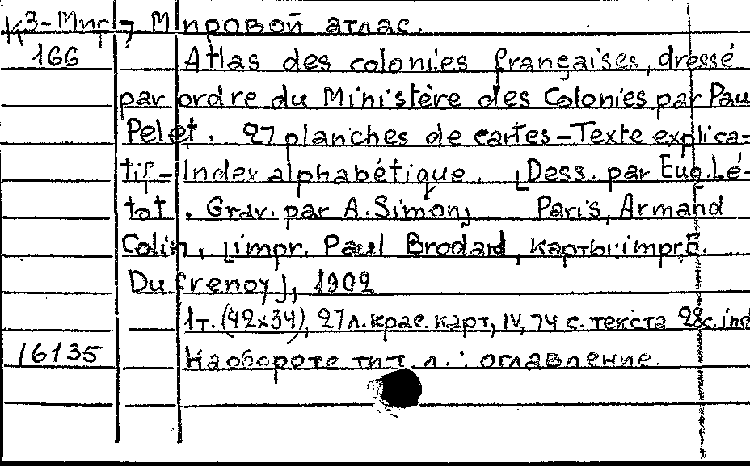 К3-Мир-7 Мировой атлас.
166 Atlas des colonies françaises, dressé
par ordre du Ministère des Colonies par Pau
Pelet. 27 planches de cartes-Texte explica-
tif-Index alphabétique. [Dess. par Eug. Lé-
tot. Grav. par A. Simon] Paris, Armand
Colin, [impr. Paul Brodard, карты: impr.
Dufrenoy], 1902
1 т. (42x34), 27 л. крас. карт, IV, 74 с. текста 28 с. ind
16135 На обороте тит. л.: оглавление.